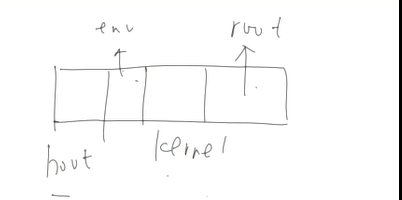 env root
boot kernel